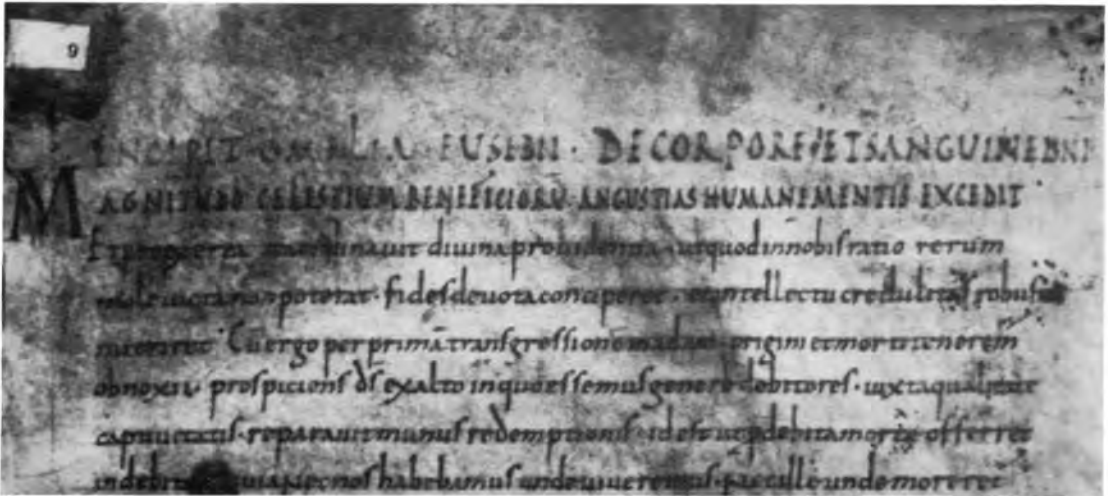 9
INCIPIT OMELIA EUSEBII · DE CORPORE ET SANGUINE DNI
MAGNITUDO CELESTIUM BENEFICIORŪ ANGUSTIAS HUMANE MENTIS EXCEDIT
Et propterea divina providentia ut quod in nobis ratio rerum
non poterat · fides devota conciperet · et intellectu credulitas robusta
Cū ergo per primā transgressionē in adam origini et morti teneremur
obnoxii · prospiciens ds ex alto in quo essemus genere debitores · iuxta qualitatē
captivitatis · reparavit munus redemptionis · id est ut p debita morte offerret
indebitā quia nec nos habebamus unde viveremus · nec ille unde moreret